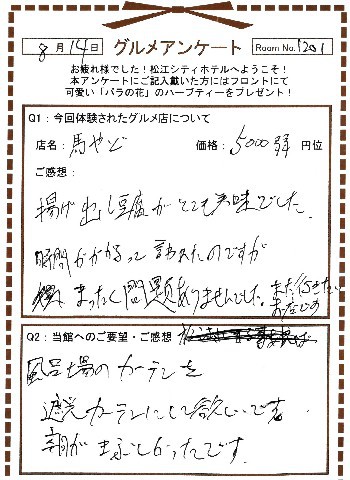 8月14日 グルメアンケート Room No. 1201
お疲れ様でした!松江シティホテルへようこそ!
本アンケートにご記入戴いた方にはフロントにて
可愛い「バラの花」のハーブティーをプレゼント!
Q1:今回体験されたグルメ店について
店名:馬やど 価格:5000弱 円位
ご感想:
揚げ出し豆腐がとても美味でした。
時間がかかるって言われたのですが
まったく問題ありませんでした。また行きたい
お店です
Q2:当館へのご要望・ご感想
風呂場のカーテンを
遮光カーテンにして欲しいです。
朝がまぶしかったです。